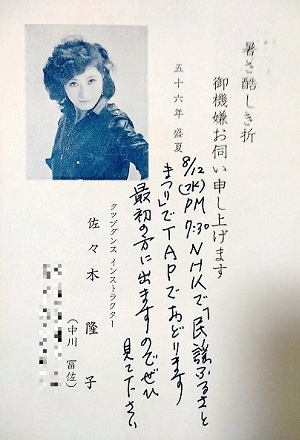 暑さ酷しき折
御機嫌お伺い申し上げます
五十六年 盛夏
8/12(水)PM7:30 NHKで「民謡ふるさと
まつり」でTAPでおどります
最初の方に出ますのでぜひ
見て下さい
タップダンス インストラクター
佐々木 隆子
(中川 富佐)